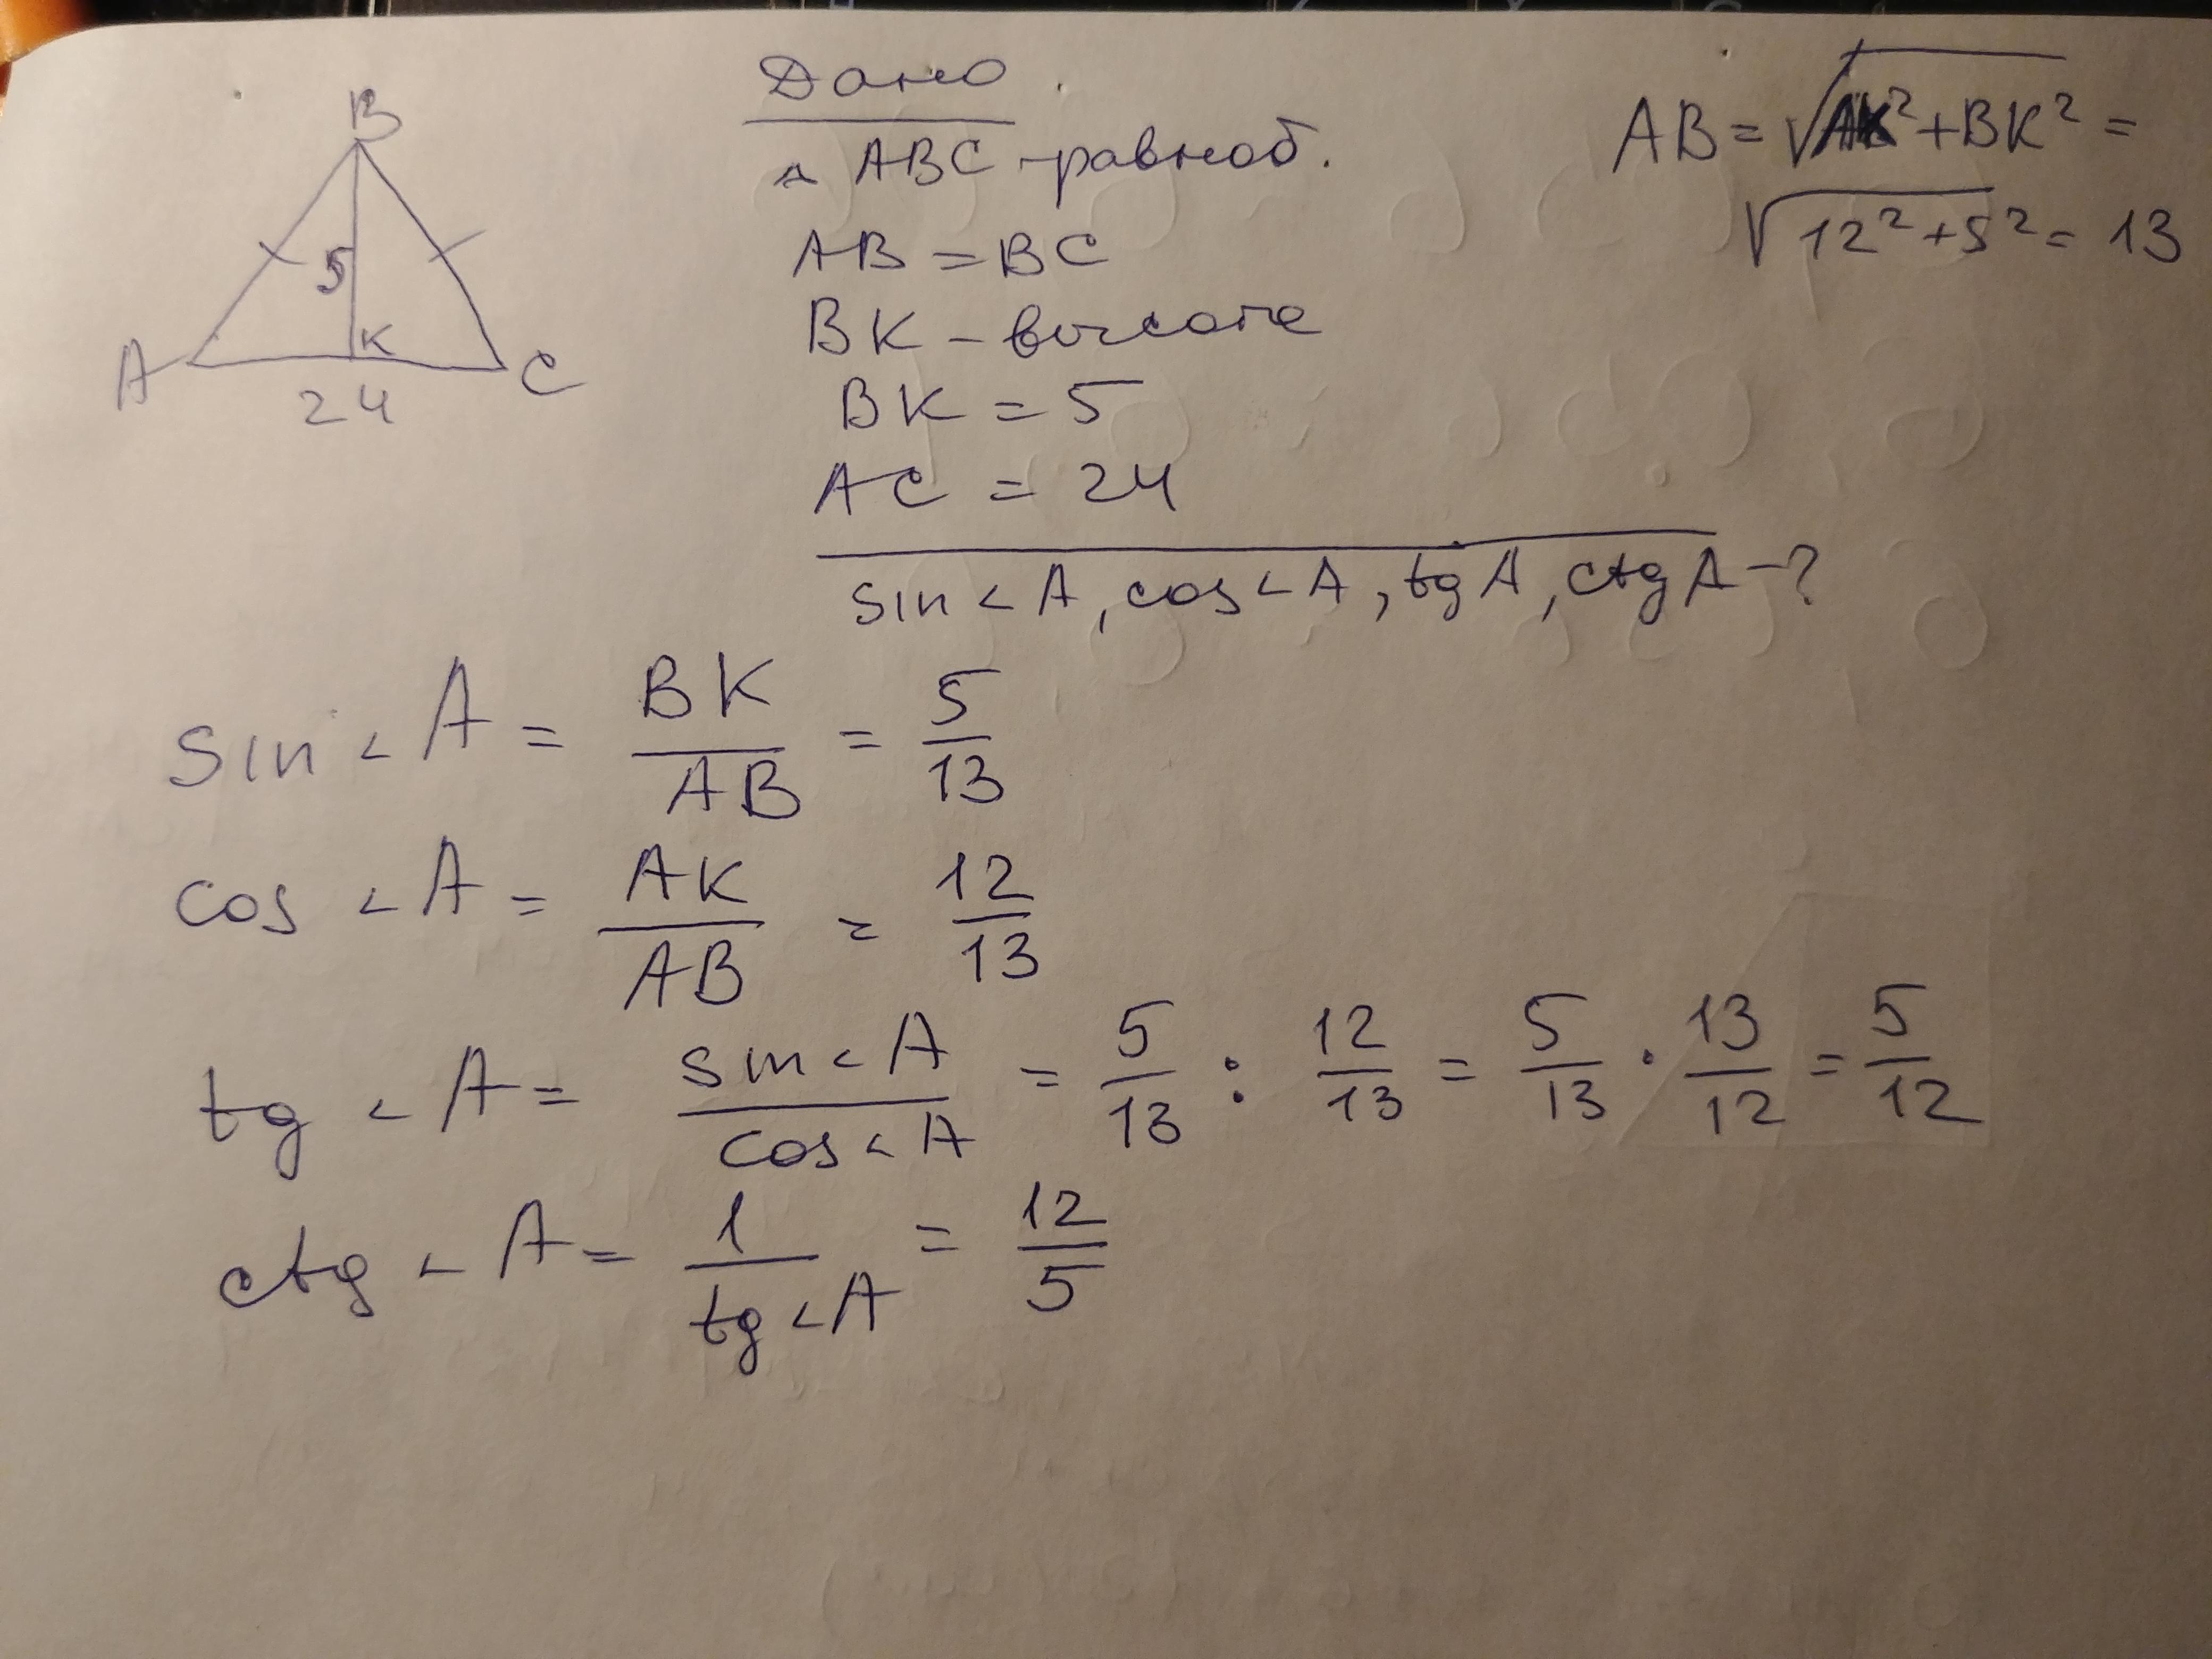 B
5
K
A
C
24
Дано
△ ABC - равноб.
AB = BC
BK - высота
BK = 5
AC = 24
sin∠A, cos∠A, tgA, ctgA - ?
AB = √AK² + BK² =
√12² + 5² = 13
sin∠A = BK/AB = 5/13
cos∠A = AK/AB = 12/13
tg∠A = sin∠A/cos∠A = 5/13 : 12/13 = 5/13 · 13/12 = 5/12
ctg∠A = 1/tg∠A = 12/5